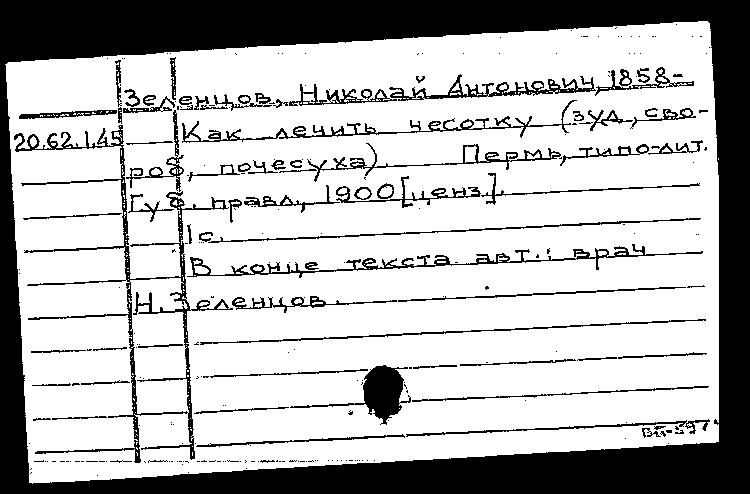 Зеленцов, Николай Антонович, 1858-
20.62.1.45 Как лечить чесотку (зуд, сво-
роб, почесуха). Пермь, типо-лит.
Губ. правл., 1900 [ценз.].
1 с.
В конце текста авт.: врач
Н. Зеленцов.